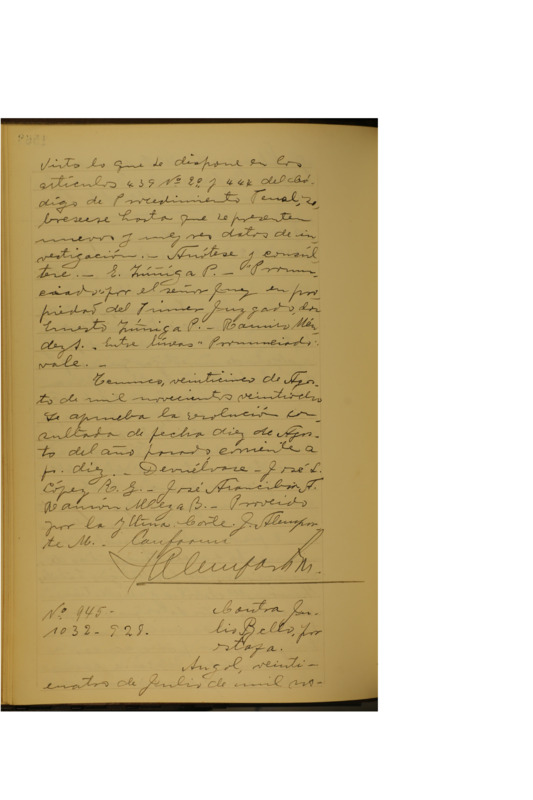 Visto lo que se dispone en los
artículos 439 Nº 2º y 444 del Có-
digo de Procedimiento Penal, so-
breseese hasta que se presenten
nuevos y mejores datos de in-
vestigación. - Anótese y consúl-
tese. - E. Zúñiga P. - "Pronun-
ciado" por el señor Juez en pro-
piedad del Primer Juzgado, don
Ernesto Zúñiga P. - Ramiro Mén-
dez S. - Entre líneas "Pronunciado".
vale. -
Temuco, veinticinco de Agos-
to de mil novecientos veintiocho
Se aprueba la resolución con-
sultada de fecha diez de Agos-
to del año pasado corriente a
fs. diez. - Devuélvase - José L.
López R. G. - José Arancibia A.
Ramón Meza B. - Proveido
por la Iltma. Corte J. Alempar-
te M. - Conforme
J Alemparte M.
Nº 945-
1032-928.
Contra Ju-
lio Bello, por
estafa.
Angol, veinti-
cuatro de Julio de mil no-